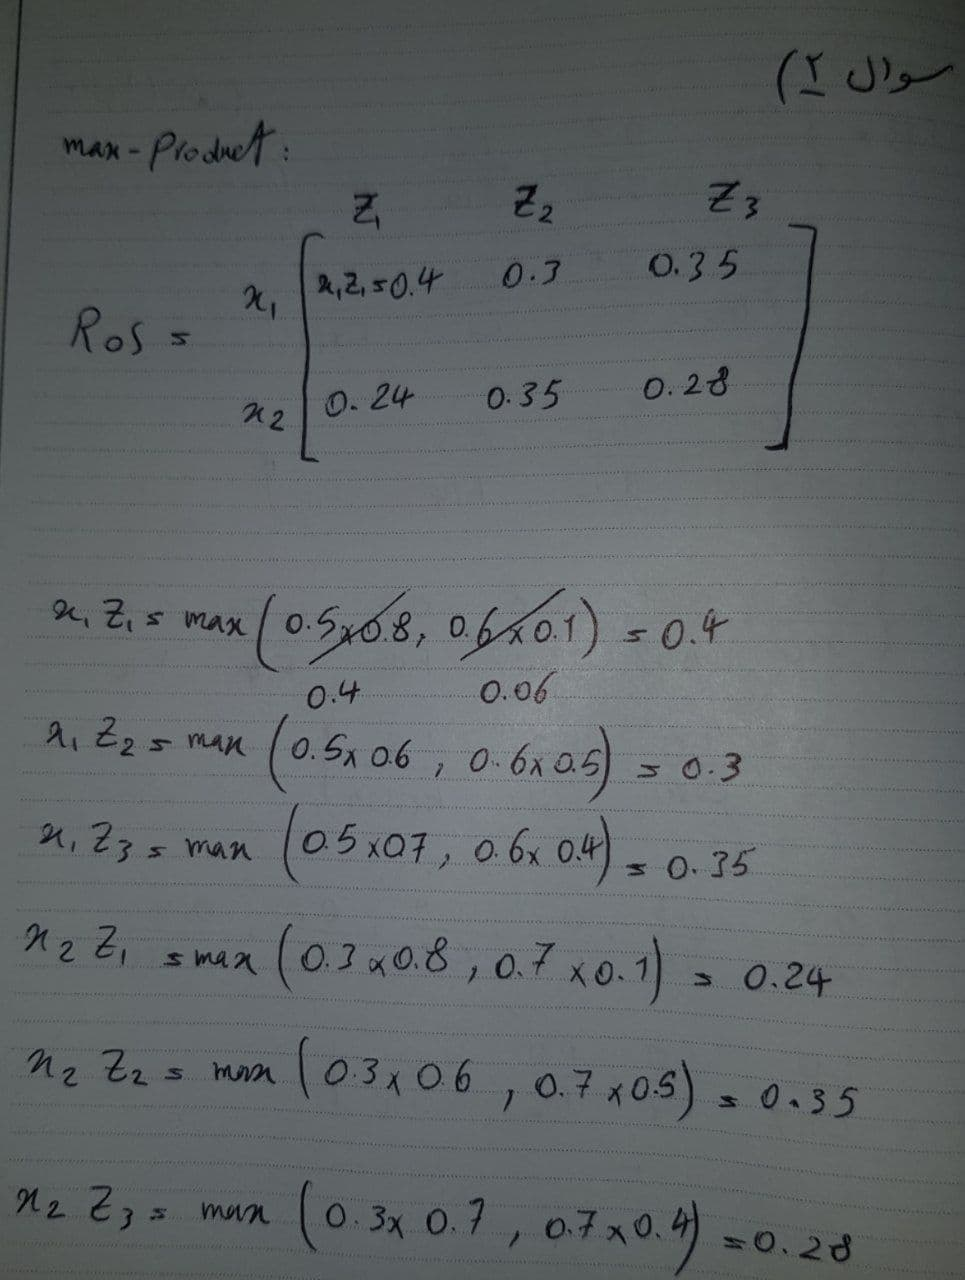 سوال ۲)
max-Product:
Z₁ Z₂ Z₃
x₁ x₁Z₁=0.4 0.3 0.35
RoS =
x₂ 0.24 0.35 0.28
x₁Z₁ = max (0.5x0.8, 0.6x0.1) = 0.4
0.4 0.06
x₁Z₂ = max (0.5x0.6, 0.6x0.5) = 0.3
x₁Z₃ = max (0.5x0.7, 0.6x0.4) = 0.35
x₂Z₁ = max (0.3x0.8, 0.7x0.1) = 0.24
x₂Z₂ = max (0.3x0.6, 0.7x0.5) = 0.35
x₂Z₃ = max (0.3x0.7, 0.7x0.4) = 0.28